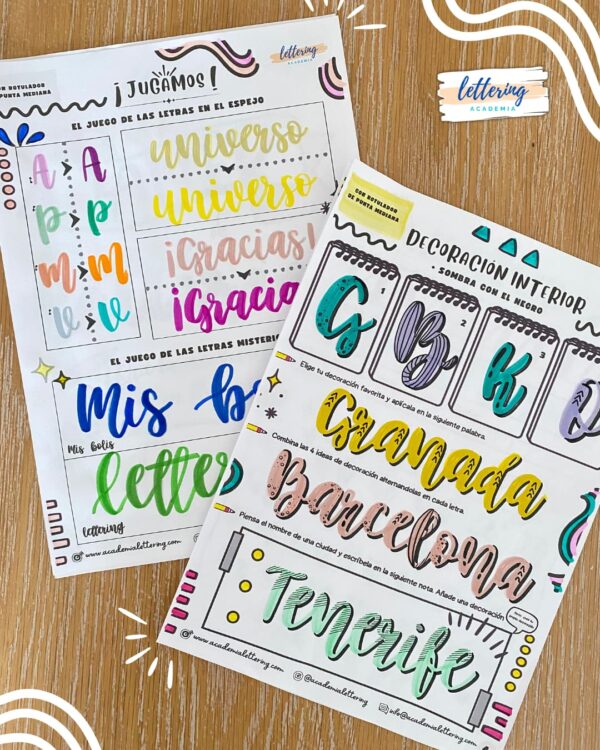 lettering
ACADEMIA
CON ROTULADOR
DE PUNTA MEDIANA
¡JUGAMOS!
lettering
ACADEMIA
EL JUEGO DE LAS LETRAS EN EL ESPEJO
A > A
p > p
m > m
v > v
universo
universo
¡Gracias!
¡Gracia
EL JUEGO DE LAS LETRAS MISTERIO
Mis bo
Mis bolis
lette
lettering
www.academialettering.com
CON ROTULADOR
DE PUNTA MEDIANA
DECORACIÓN INTERIOR
• SOMBRA CON EL NEGRO
1
2
3
G
B
K
Elige tu decoración favorita y aplícala en la siguiente palabra.
Granada
Combina las 4 ideas de decoración alternandolas en cada letra.
Barcelona
Piensa el nombre de una ciudad y escríbela en la siguiente nota. Añade una decoración
Tenerife
www.academialettering.com
@academialettering
info@academialettering.com